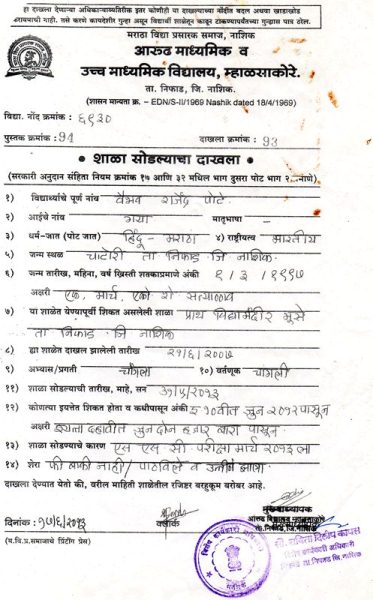 हा दाखला देणाऱ्या अधिकाऱ्याव्यतिरिक्त इतर कोणीही या दाखल्याच्या नोंदीत बदल अथवा खाडाखोड
करावयाची नाही. तसे करणे कायदेशीर गुन्हा असून विद्यार्थी शाळेतून काढून टाकण्यापर्यंतच्या गुन्ह्यास पात्र ठरेल.
मराठा विद्या प्रसारक समाज, नाशिक
आरुढ माध्यमिक व
उच्च माध्यमिक विद्यालय, म्हाळसाकोरे.
ता. निफाड, जि. नाशिक.
(शासन मान्यता क्र. - EDN/S-II/1969 Nashik dated 18/4/1969)
विद्या. नोंद क्रमांक : ६९३०
पुस्तक क्रमांक : 94 दाखला क्रमांक : 93
• शाळा सोडल्याचा दाखला •
(सरकारी अनुदान संहिता नियम क्रमांक १७ आणि ३२ मधिल भाग दुसरा पोट भाग २...नाणे)
१) विद्यार्थ्याचे पूर्ण नांव वैभव राजेंद्र पोटे
२) आईचे नांव गया मातृभाषा -
३) धर्म-जात (पोट जात) हिंदू - मराठा ४) राष्ट्रीयत्व भारतीय
५) जन्म स्थळ चाटोरी ता निफाड जि नाशिक
६) जन्म तारीख, महिना, वर्ष ख्रिस्ती शतकाप्रमाणे अंकी १ / ३ / १९९७
अक्षरी एक, मार्च, एकोणीसशे सत्याण्णव
७) या शाळेत येण्यापूर्वी शिकत असलेली शाळा प्राथ विद्यामंदीर भूसे
ता निफाड जि नाशिक
८) ह्या शाळेत दाखल झालेली तारीख २१/६/२००७
९) अभ्यास/प्रगती चांगली १०) वर्तणूक चांगली
११) शाळा सोडल्याची तारीख, माहे, सन ३१/५/२०१३
१२) कोणत्या इयत्तेत शिकत होता व कधीपासून अंकी इ १०वीत जून २०१२ पासून
अक्षरी इयत्ता दहावीत जून दोन हजार बारा पासून
१३) शाळा सोडण्याचे कारण एस एस सी परीक्षा मार्च २०१३ ला
१४) शेरा फी बाकी नाही / पाठविले व उत्तीर्ण झाला
दाखला देण्यात येतो की, वरील माहिती शाळेतील रजिष्टर बरहुकूम बरोबर आहे.
दिनांक : १७/६/२०१३ क्लार्क मुख्याध्यापक
आरुढ विद्यालय म्हाळसाकोरे
ता.निफाड, जि.नाशिक
(म.वि.प्र.समाजाचे प्रिंटींग प्रेस)
विशेष कार्यकारी अधिकारी
नाशिक
सौ. सविता दिलीप कापसे
विशेष कार्यकारी अधिकारी
निफाड ता.निफाड जि.नाशिक